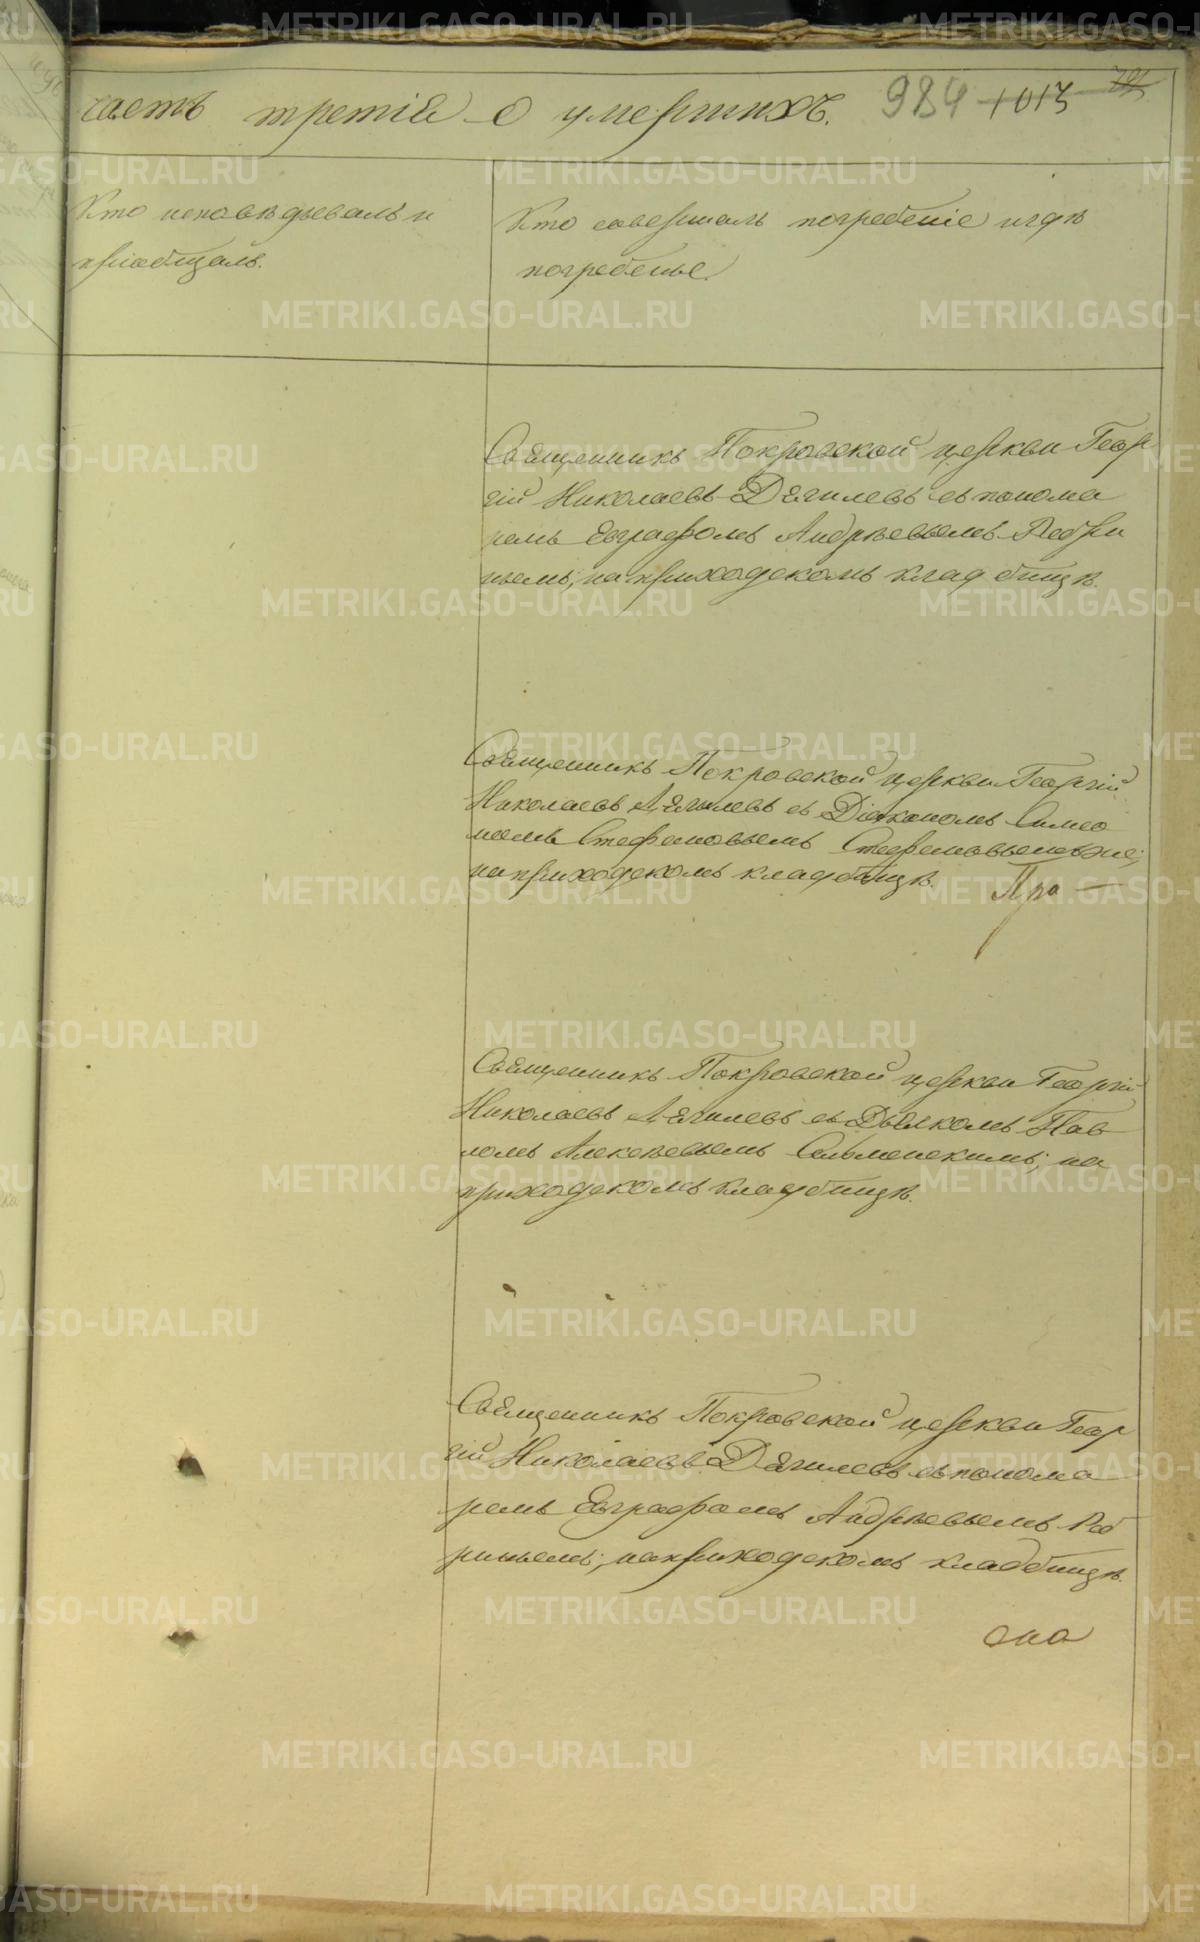 часть третія о умершихъ. 984 1013
Кто исповѣдывалъ и
пріобщалъ.
Кто совершалъ погребеніе и гдѣ
погребены.
Священникъ Покровской церкви Геор
гій Николаевъ Дягилевъ съ понома
ремъ Евграфомъ Андрѣевымъ Ребри
нымъ; на приходскомъ кладбищѣ.
Священникъ Покровской церкви Георгій
Николаевъ Дягилевъ съ Діакономъ Симео
номъ Стефановымъ Стефановымъ же;
на приходскомъ кладбищѣ. Пра
Священникъ Покровской церкви Георгій
Николаевъ Дягилевъ съ Дьякомъ Пав
ломъ Алексѣевымъ Сельменскимъ; на
приходскомъ кладбищѣ.
Священникъ Покровской церкви Геор
гій Николаевъ Дягилевъ съ понома
ремъ Евграфомъ Андрѣевымъ Реб
ринымъ; на приходскомъ кладбищѣ.
METRIKI.GASO-URAL.RU